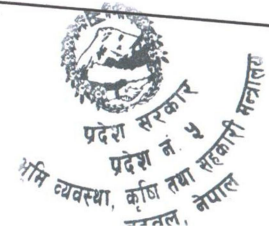 प्रदेश सरकार
प्रदेश नं. ५
भूमि व्यवस्था, कृषि तथा सहकारी मन्त्रालय
बुटवल, नेपाल